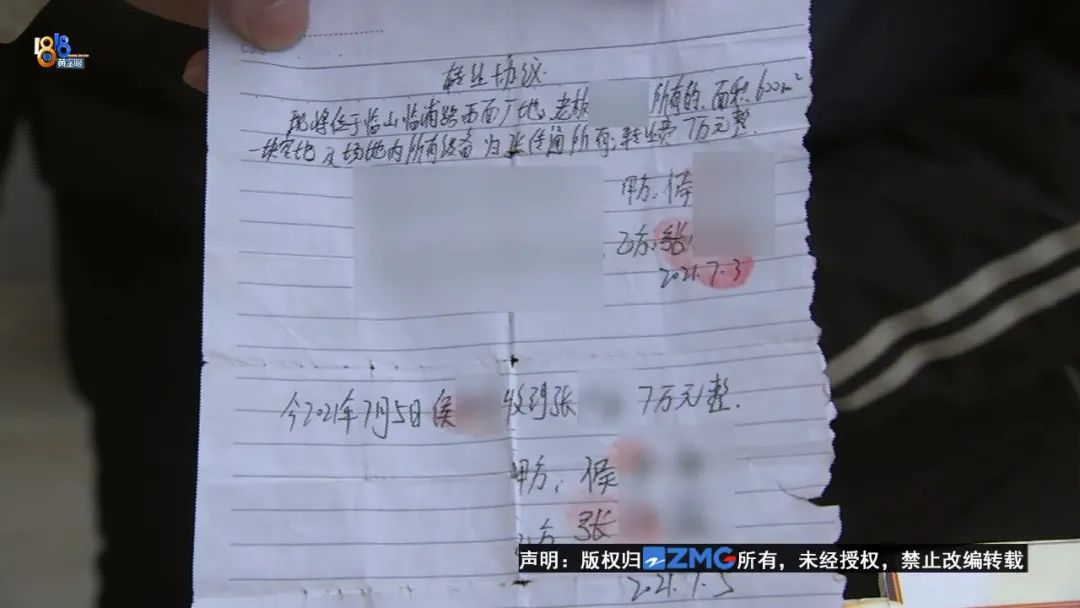 1818
黄金眼
转让协议
现将位于临山临浦路西面厂地,老板 所有的,面积600m²
一块空地及场地内所有设备为张 所有,转让费7万元整.
甲方:侯
乙方:张
2021.7.3
今2021年7月5日侯 收到张 7万元整.
甲方:侯
乙方 张
2021.7.5
声明:版权归ZMG所有,未经授权,禁止改编转载